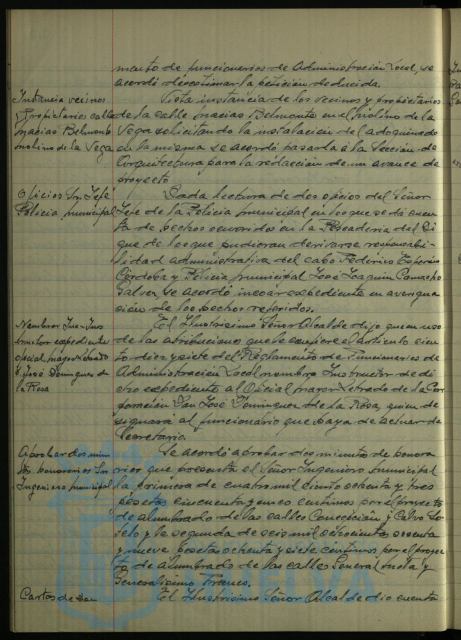 mento de funcionarios de Administración Local, se
acordó desestimar la petición deducida.
Instancia vecinos
Propietarios calle
Macias Belmonte
Molino de la Vega
Vista instancia de los vecinos y propietarios
de la calle Macias Belmonte en el Molino de la
Vega solicitando la instalación del adoquinado
en la misma se acordó pasarla a la Sección de
Arquitectura para la redacción de un avance de
proyecto
Oficios Sr. Jefe
Policia municipal
Dada lectura de dos oficios del Señor
Jefe de la Policia municipal en los que se dá cuen
ta de hechos ocurridos en la Pescaderia del
que de los que pudieran derivarse responsabi-
lidad administrativa del cabo Federico
Córdoba y Policia municipal José Joaquin Camacho
Galvez se acordó incoar expediente en averigua
ción de los hechos referidos.
Nombrar Juez Ins
tructor expediente
oficial mayor letrado
D. José Dominguez de
la Rosa
El Ilustrisimo Señor Alcalde dijo que en uso
de las atribuciones que le confiere el articulo cien
to diez y siete del Reglamento de Funcionarios de
Administración Local nombra Instructor de di
cho expediente al Oficial mayor Letrado de la Cor
poración Don José Dominguez de la Rosa, quien de
signará al funcionario que haya de actuar de
Secretario.
Aprobar dos minu
tas honorarios Sr.
Ingeniero municipal
Se acordó aprobar dos minutas de honora
rios que presenta el Señor Ingeniero municipal
la primera de cuatro mil ciento ochenta y tres
pesetas cincuenta y cinco centimos por el proyecto
de alumbrado de las calles Concepción y Calvo So
telo y la segunda de seis mil ochocientas
y nueve pesetas ochenta y siete centimos por el proyec
to de alumbrado de las calles General Mola y
Generalisimo Franco.
Cartas de
El Ilustrisimo Señor Alcalde dio cuenta